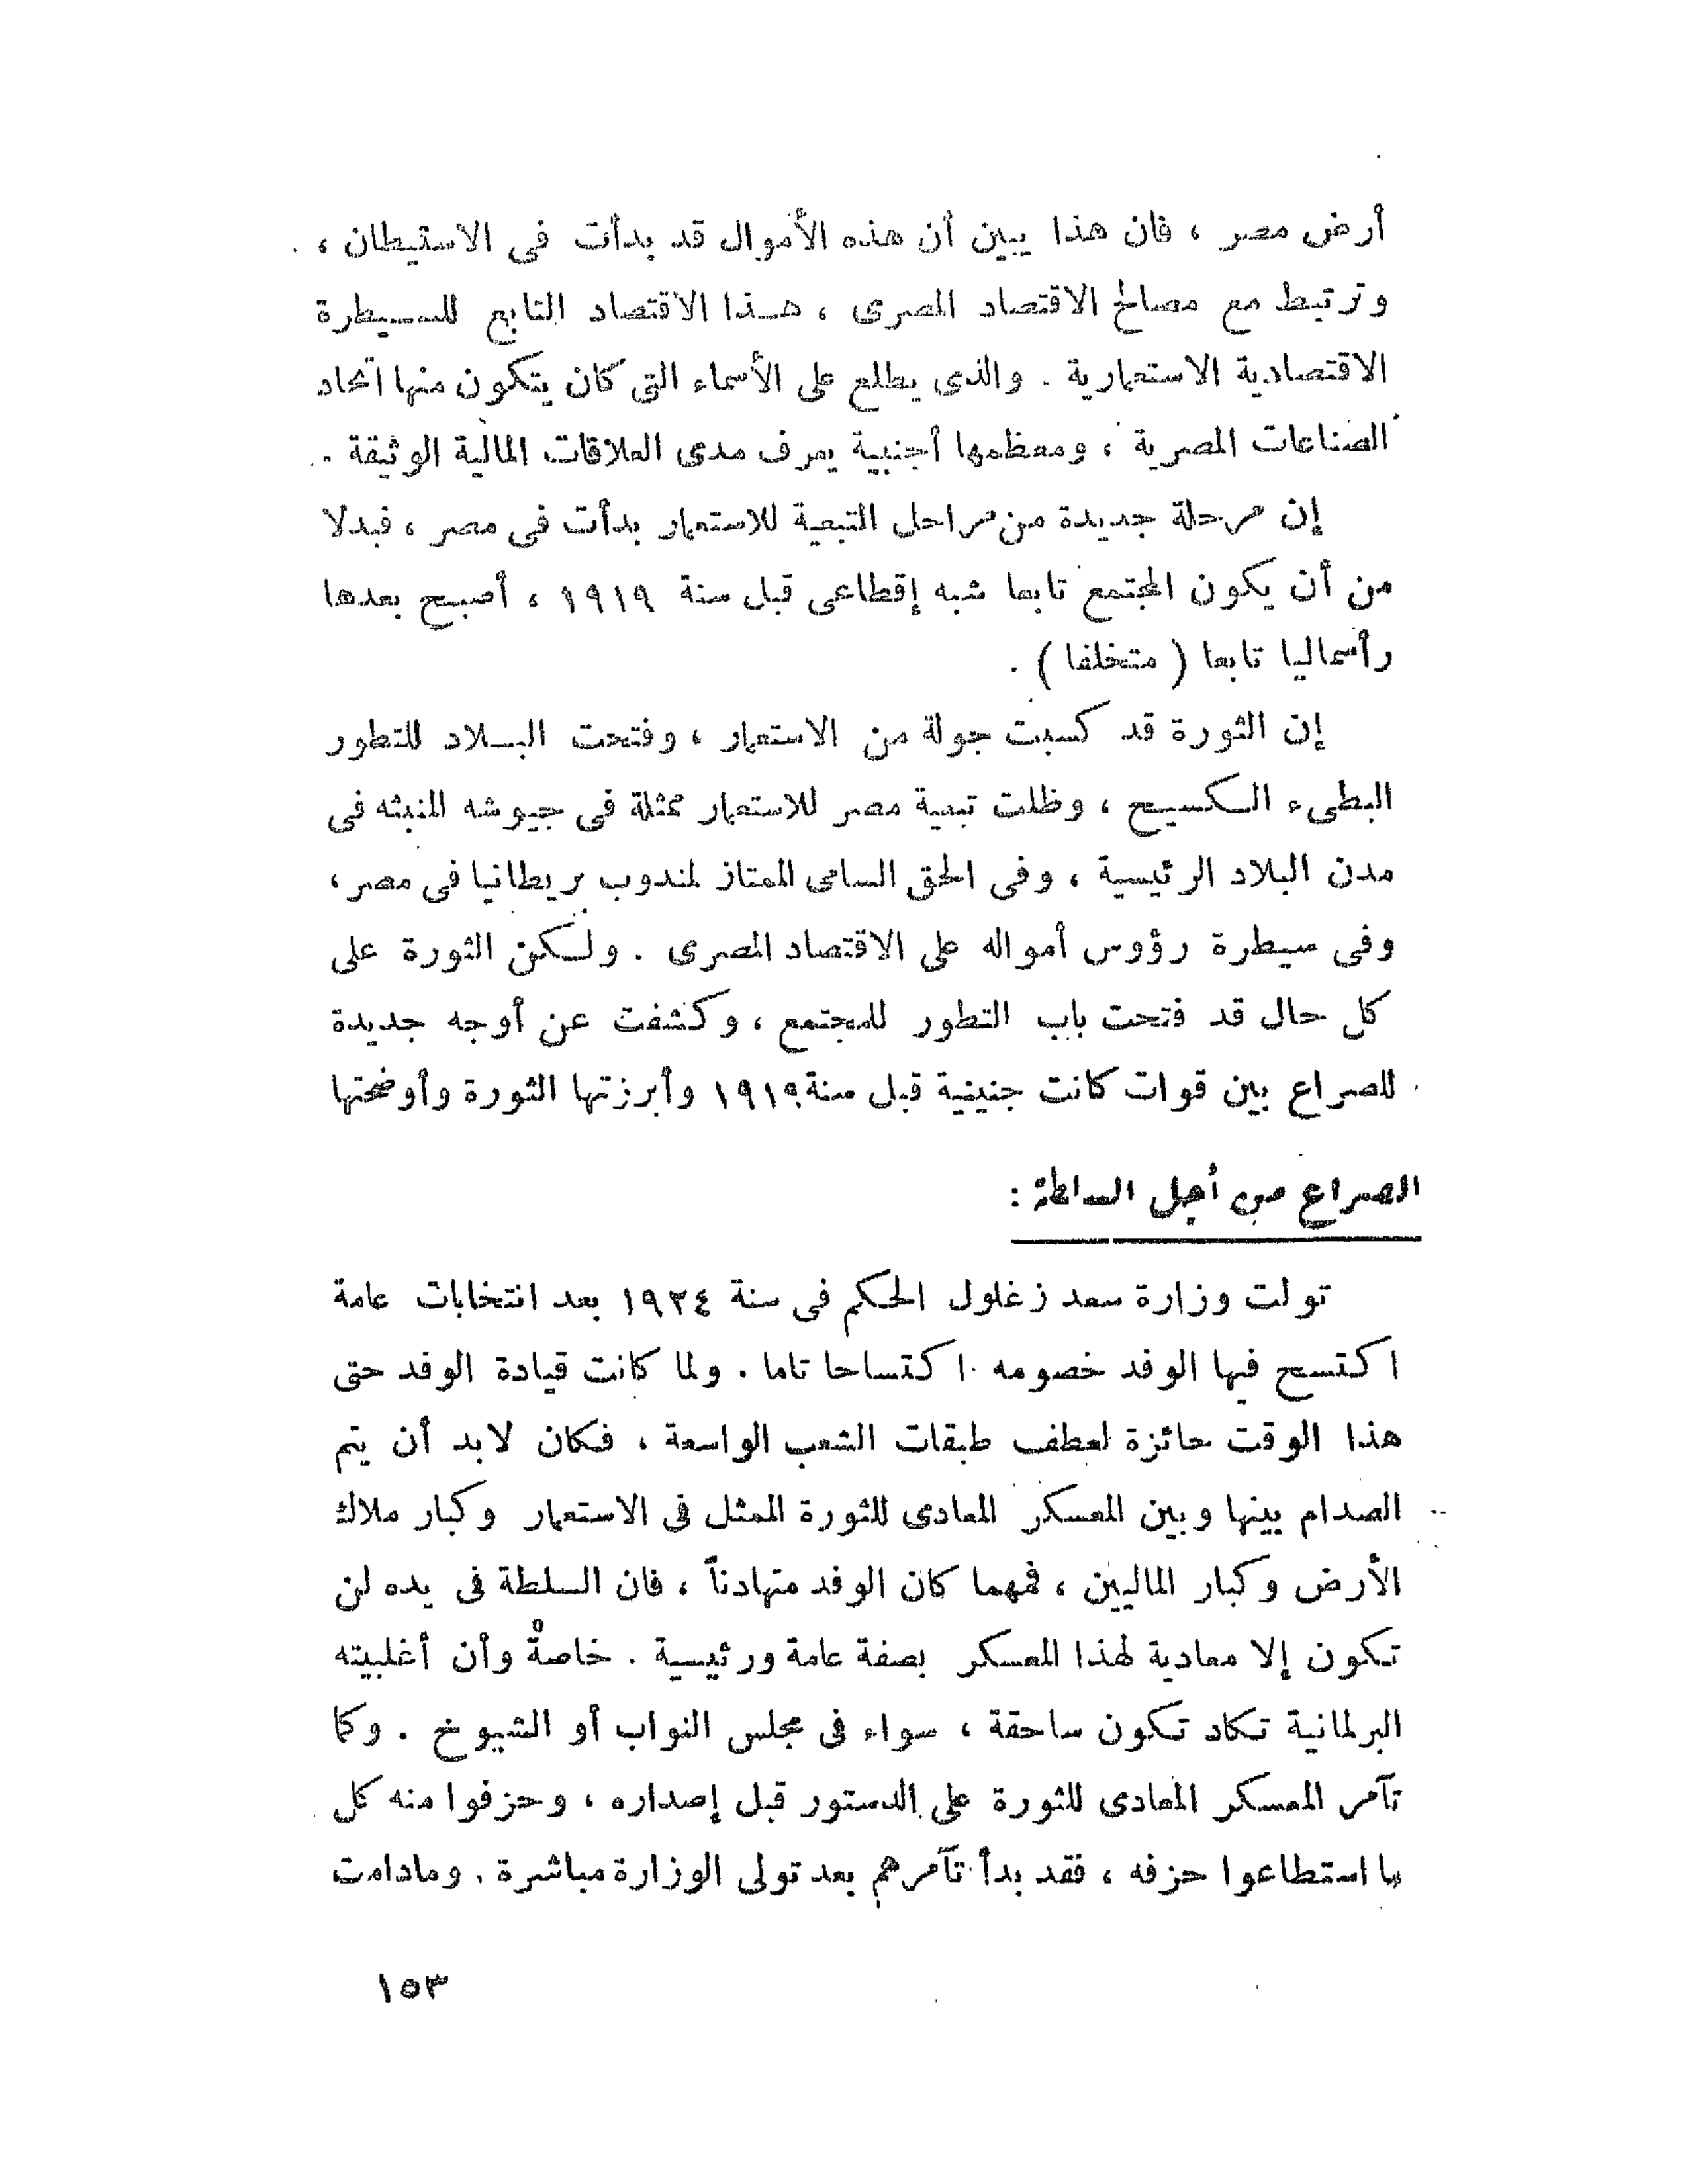 أرض مصر ، فان هذا يبين أن هذه الأموال قد بدأت فى الاستيطان ،
وترتبط مع مصالح الاقتصاد المصرى ، هذا الاقتصاد التابع للسيطرة
الاقتصادية الاستعمارية . والذى يطلع على الأسماء التى كان يتكون منها اتحاد
الصناعات المصرية ، ومعظمها أجنبية يعرف مدى العلاقات المالية الوثيقة .
إن مرحلة جديدة من مراحل التبعية للاستعمار بدأت فى مصر ، فبدلا
من أن يكون المجتمع تابعا شبه إقطاعى قبل سنة ١٩١٩ ، أصبح بعدها
رأسماليا تابعا ( متخلفا ) .
إن الثورة قد كسبت جولة من الاستعمار ، وفتحت البلاد للتطور
البطىء الكسيح ، وظلت تبعية مصر للاستعمار ممثلة فى جيوشه المنبثه فى
مدن البلاد الرئيسية ، وفى الحق السامى الممتاز لمندوب بريطانيا فى مصر ،
وفى سيطرة رؤوس أمواله على الاقتصاد المصرى . ولكن الثورة على
كل حال قد فتحت باب التطور للمجتمع ، وكشفت عن أوجه جديدة
للصراع بين قوات كانت جنينية قبل سنة ١٩١٩ وأبرزتها الثورة وأوضحتها
الصراع من أجل السلطة :
تولت وزارة سعد زغلول الحكم فى سنة ١٩٢٤ بعد انتخابات عامة
اكتسح فيها الوفد خصومه اكتساحا تاما . ولما كانت قيادة الوفد حتى
هذا الوقت حائزة لعطف طبقات الشعب الواسعة ، فكان لابد أن يتم
الصدام بينها وبين المعسكر المعادى للثورة الممثل فى الاستعمار وكبار ملاك
الأرض وكبار الماليين ، فمهما كان الوفد متهادناً ، فان السلطة فى يده لن
تكون إلا معادية لهذا المعسكر بصفة عامة ورئيسية . خاصة وأن أغلبيته
البرلمانية تكاد تكون ساحقة ، سواء فى مجلس النواب أو الشيوخ . وكما
تآمر المعسكر المعادى للثورة على الدستور قبل إصداره ، وحزفوا منه كل
ما استطاعوا حزفه ، فقد بدأ تآمرهم بعد تولى الوزارة مباشرة . ومادامت
١٥٣